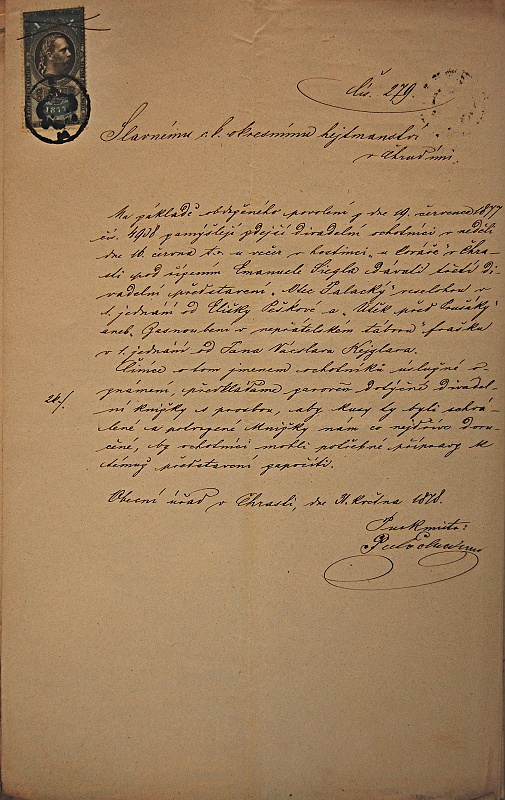 čís. 279.
Slavnému c. k. okresnímu hejtmanství
v Chrudimi.
Na základě obdrženého povolení z dne 19. července 1877
čís. 4908 zamýšlejí zdejší divadelní ochotníci v neděli
dne 16. června t. r. u večer v hostinci „u Kovářů" v Chra-
sti pod řízením Emanuele Siegla davati třetí di-
vadelní představení „Otec Palacký" veselohru v
1. jednání od Elišky Peškové a „Útěk před Prušáky"
aneb „Zasnoubení v nepřátelském táboru" fraška
v 1. jednání od Jana Václava Kejzlara.
Činíce o tom jmenem ochotníků úslužné o-
známení, předkládáme zároveň dotyčné divadel-
ní knížky s prosbou, aby kusy ty byli schvá-
lené a potvrzené knížky nám co nejdříve doru-
čené, by ochotníci mohli potřebné přípravy k
témuž představení započíti.
2k./.
Obecní úřad v Chrasti, dne 31. května 1878.
Purkmistr: